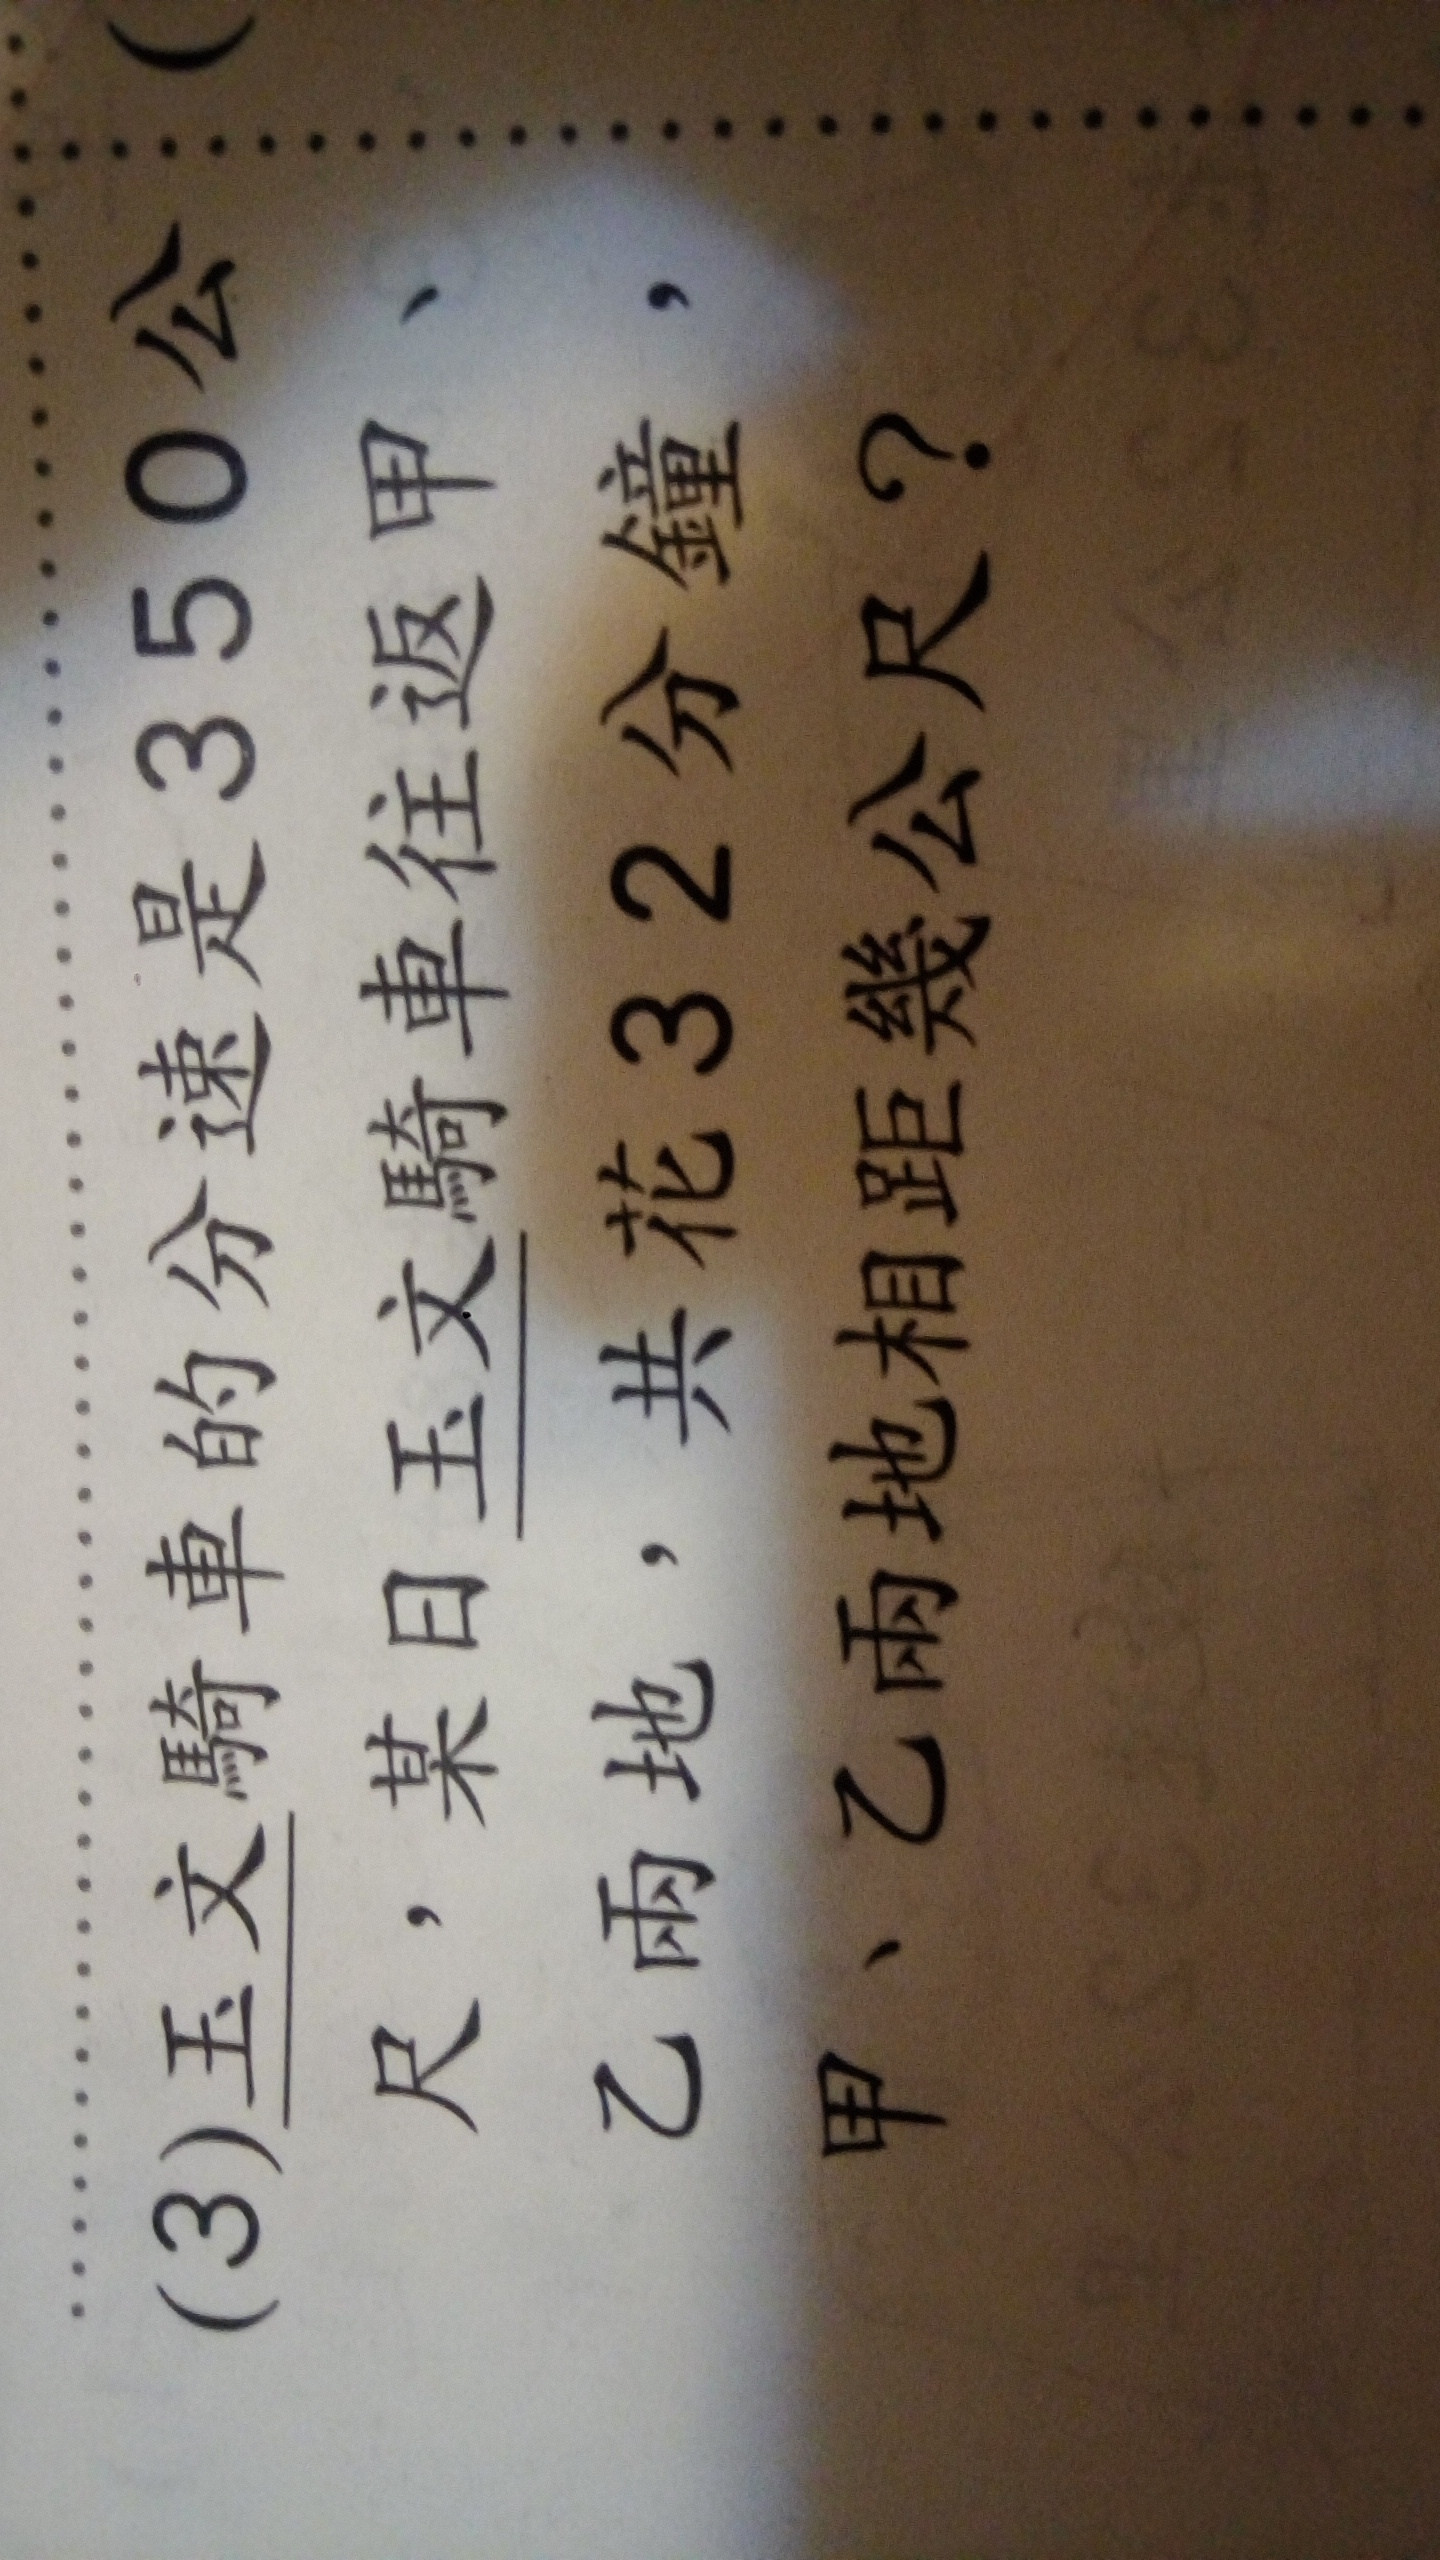 (3)玉文騎車的分速是350公
尺，某日玉文騎車往返甲、
乙兩地，共花32分鐘，
甲、乙兩地相距幾公尺？
(